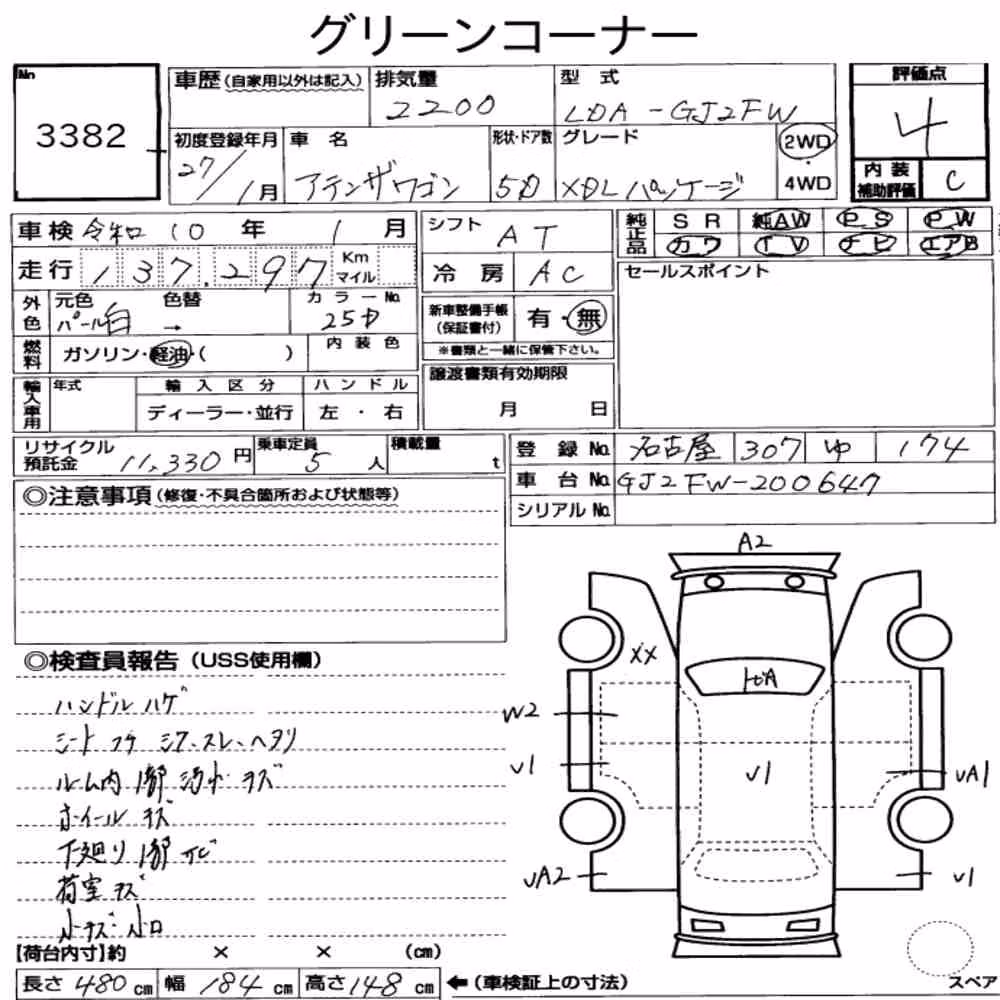 グリーンコーナー
No. 3382
車歴 (自家用以外は記入) 排気量 2200 型 式 LDA-GJ2FW
評価点 4
初度登録年月 27/1月 車 名 アテンザワゴン 形状・ドア数 5D グレード XDL パッケージ 2WD・4WD
内装補助評価 C
車検 令和 10 年 1 月
シフト AT
純正品 SR 純AW PS PW
カワ TV ナビ エアB
走行 137,297 Km マイル
冷 房 AC
セールスポイント
外色 元色 パール白 色替 → カラーNo. 25D
新車整備手帳 (保証書付) 有・無
※書類と一緒に保管下さい。
燃料 ガソリン・軽油・( ) 内装色
譲渡書類有効期限
月 日
輸入車用 年式 輸入区分 ハンドル
ディーラー・並行 左・右
リサイクル預託金 11,330 円 乗車定員 5 人 積載量 t
登 録 No. 名古屋 307 ゆ 174
車 台 No. GJ2FW-200647
シリアル No.
◎注意事項 (修復・不具合箇所および状態等)
◎検査員報告 (USS使用欄)
ハンドル ハゲ
シート コゲ シワ、スレ、ヘタリ
ルーム内 1部 汚れ・キズ
ホイール キズ
下廻り 1部 サビ
荷室 キズ
小キズ・小凹
A2
XX
トビA
W2
U1
U1
UA1
UA2
U1
【荷台内寸】約 × × (cm)
長さ 480 cm 幅 184 cm 高さ 148 cm ←(車検証上の寸法)
スペア